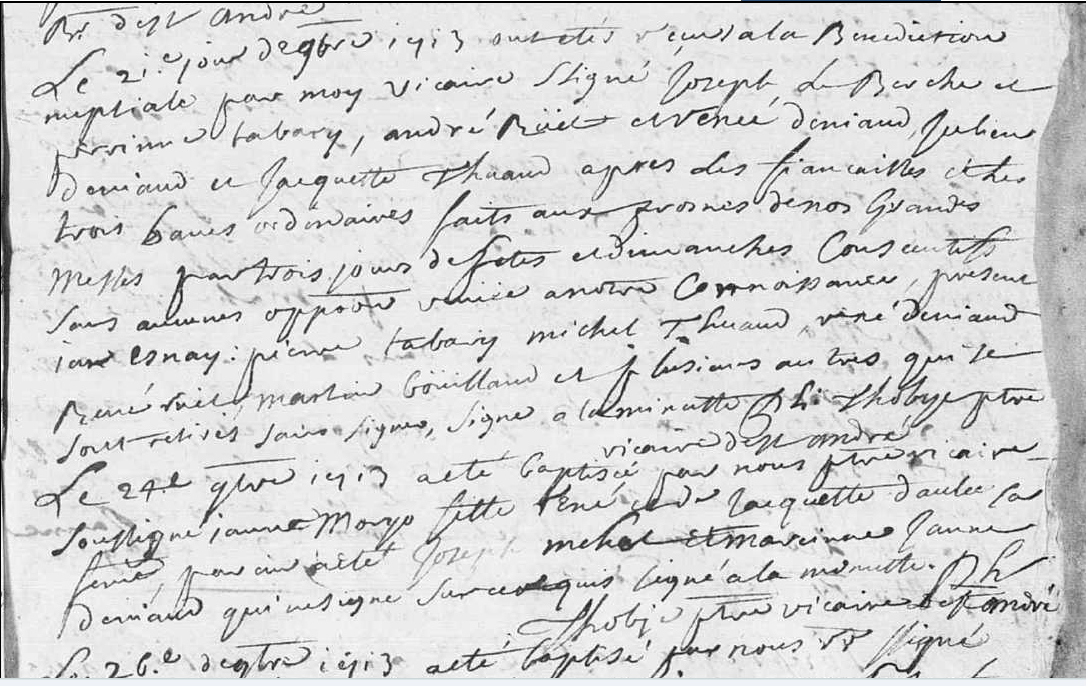 Bre de st andré
Le 21.e jour de 9bre 1713 ont etés reçus a la Benediction
nuptiale par moy vicaire ssigné Joseph Le Berche et
perrinne tabary, andré Ruët et renée deniaud, Julien
deniaud et Jacquette Thuaud apres les fiancailles et les
trois banes ordinaires faits aux prosnes de nos Grandes
Messes par trois jours de fetes et dimanches Consecutiffs
sans aucunes oppoon venüe a notre Connoissance, present
jan esnay: pierre tabary michel Thuaud, rené deniaud
René ruet, martin boüillaud et plusieurs autres qui se
sont retirés sans signer, signé a la minutte Ph: Thobye ptre
vicaire de st andré
Le 24.e 9bre 1713 a eté baptisée par nous ptre vicaire
soussigné janne Moryo fille René et de Jacquette daulee sa
feme, parain a eté Joseph mehat et maraine Janne
deniaud qui ne signe sur ce requis signé a la minutte. Ph
Thobye ptre vicaire de st andré
Le 26.e de 9bre 1713 a eté baptisé par nous ssigné